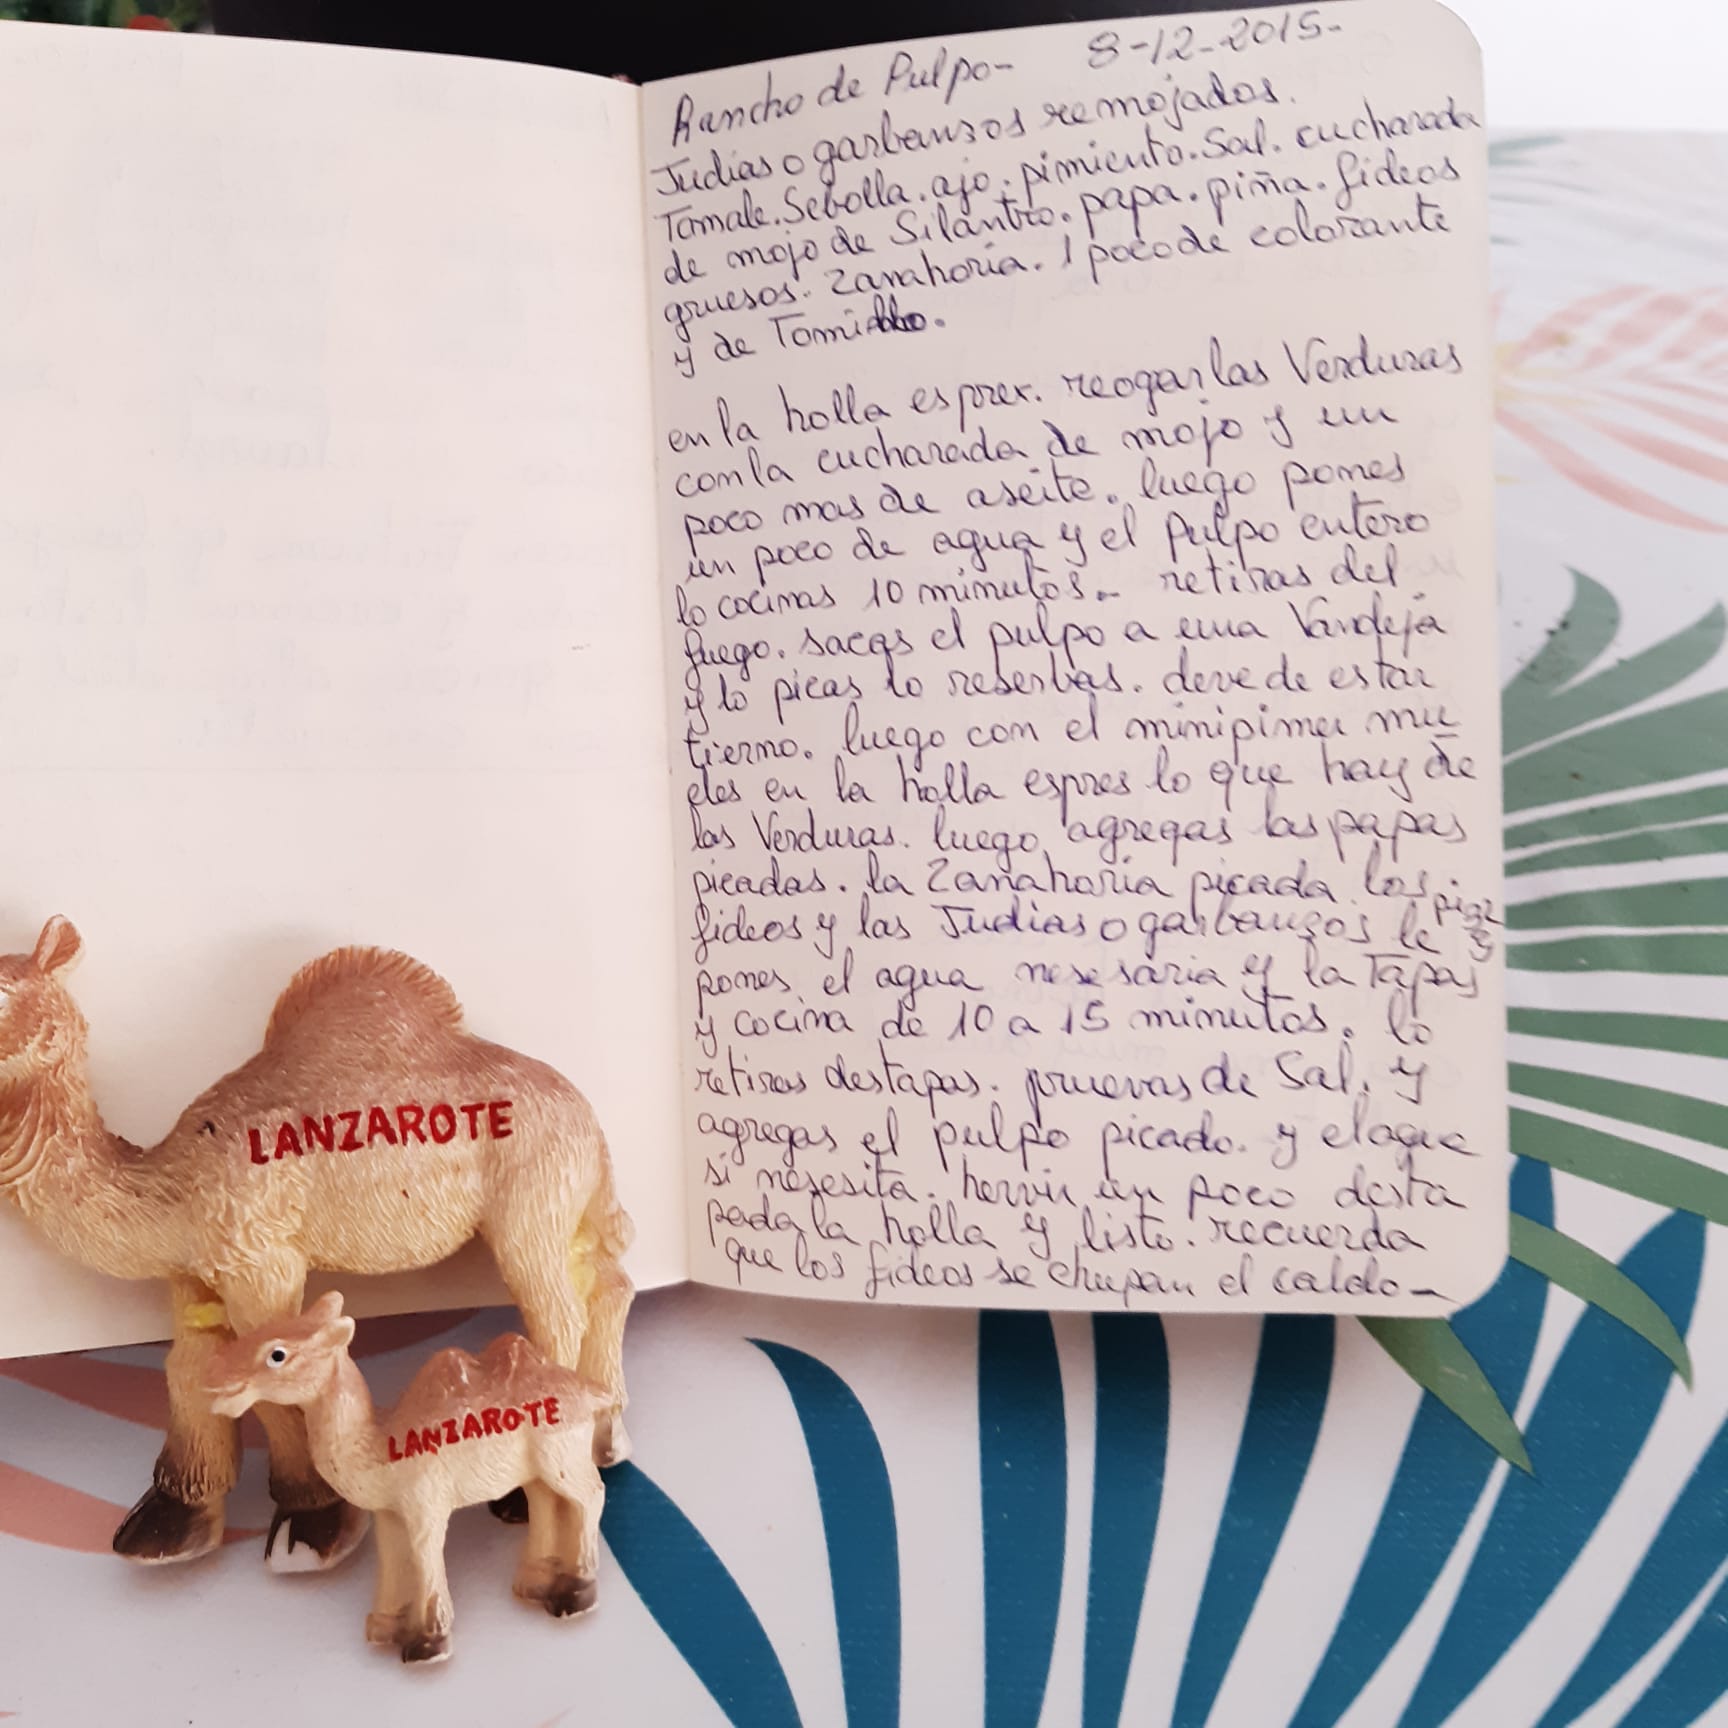 Rancho de Pulpo- 8-12-2015-
Judias o garbansos remojados.
Tomate. Sebolla. ajo. pimiento. Sal. cucharada
de mojo de Silantro. papa. piña. fideos
gruesos. Zanahoria. 1 poco de colorante
y de Tomillo.
en la holla espres. reogar las Verduras
con la cucharada de mojo y un
poco mas de aseite. luego pones
un poco de agua y el pulpo entero
lo cocinas 10 minutos.- retiras del
fuego. sacas el pulpo a una Vandeja
y lo picas lo reserbas. deve de estar
tierno. luego con el minipimer mu
eles en la holla espres lo que hay de
las Verduras. luego agregas las papas
picadas. la Zanahoria picada. los
fideos y las Judias o garbansos le
pones el agua nesesaria y la Tapas
y cocina de 10 a 15 minutos. lo
retiras destapas. pruevas de Sal. y
agregas el pulpo picado. y el agua
si nesesita. hervir un poco desta
pada la holla y listo. recuerda
que los fideos se chupan el caldo-
LANZAROTE
LANZAROTE